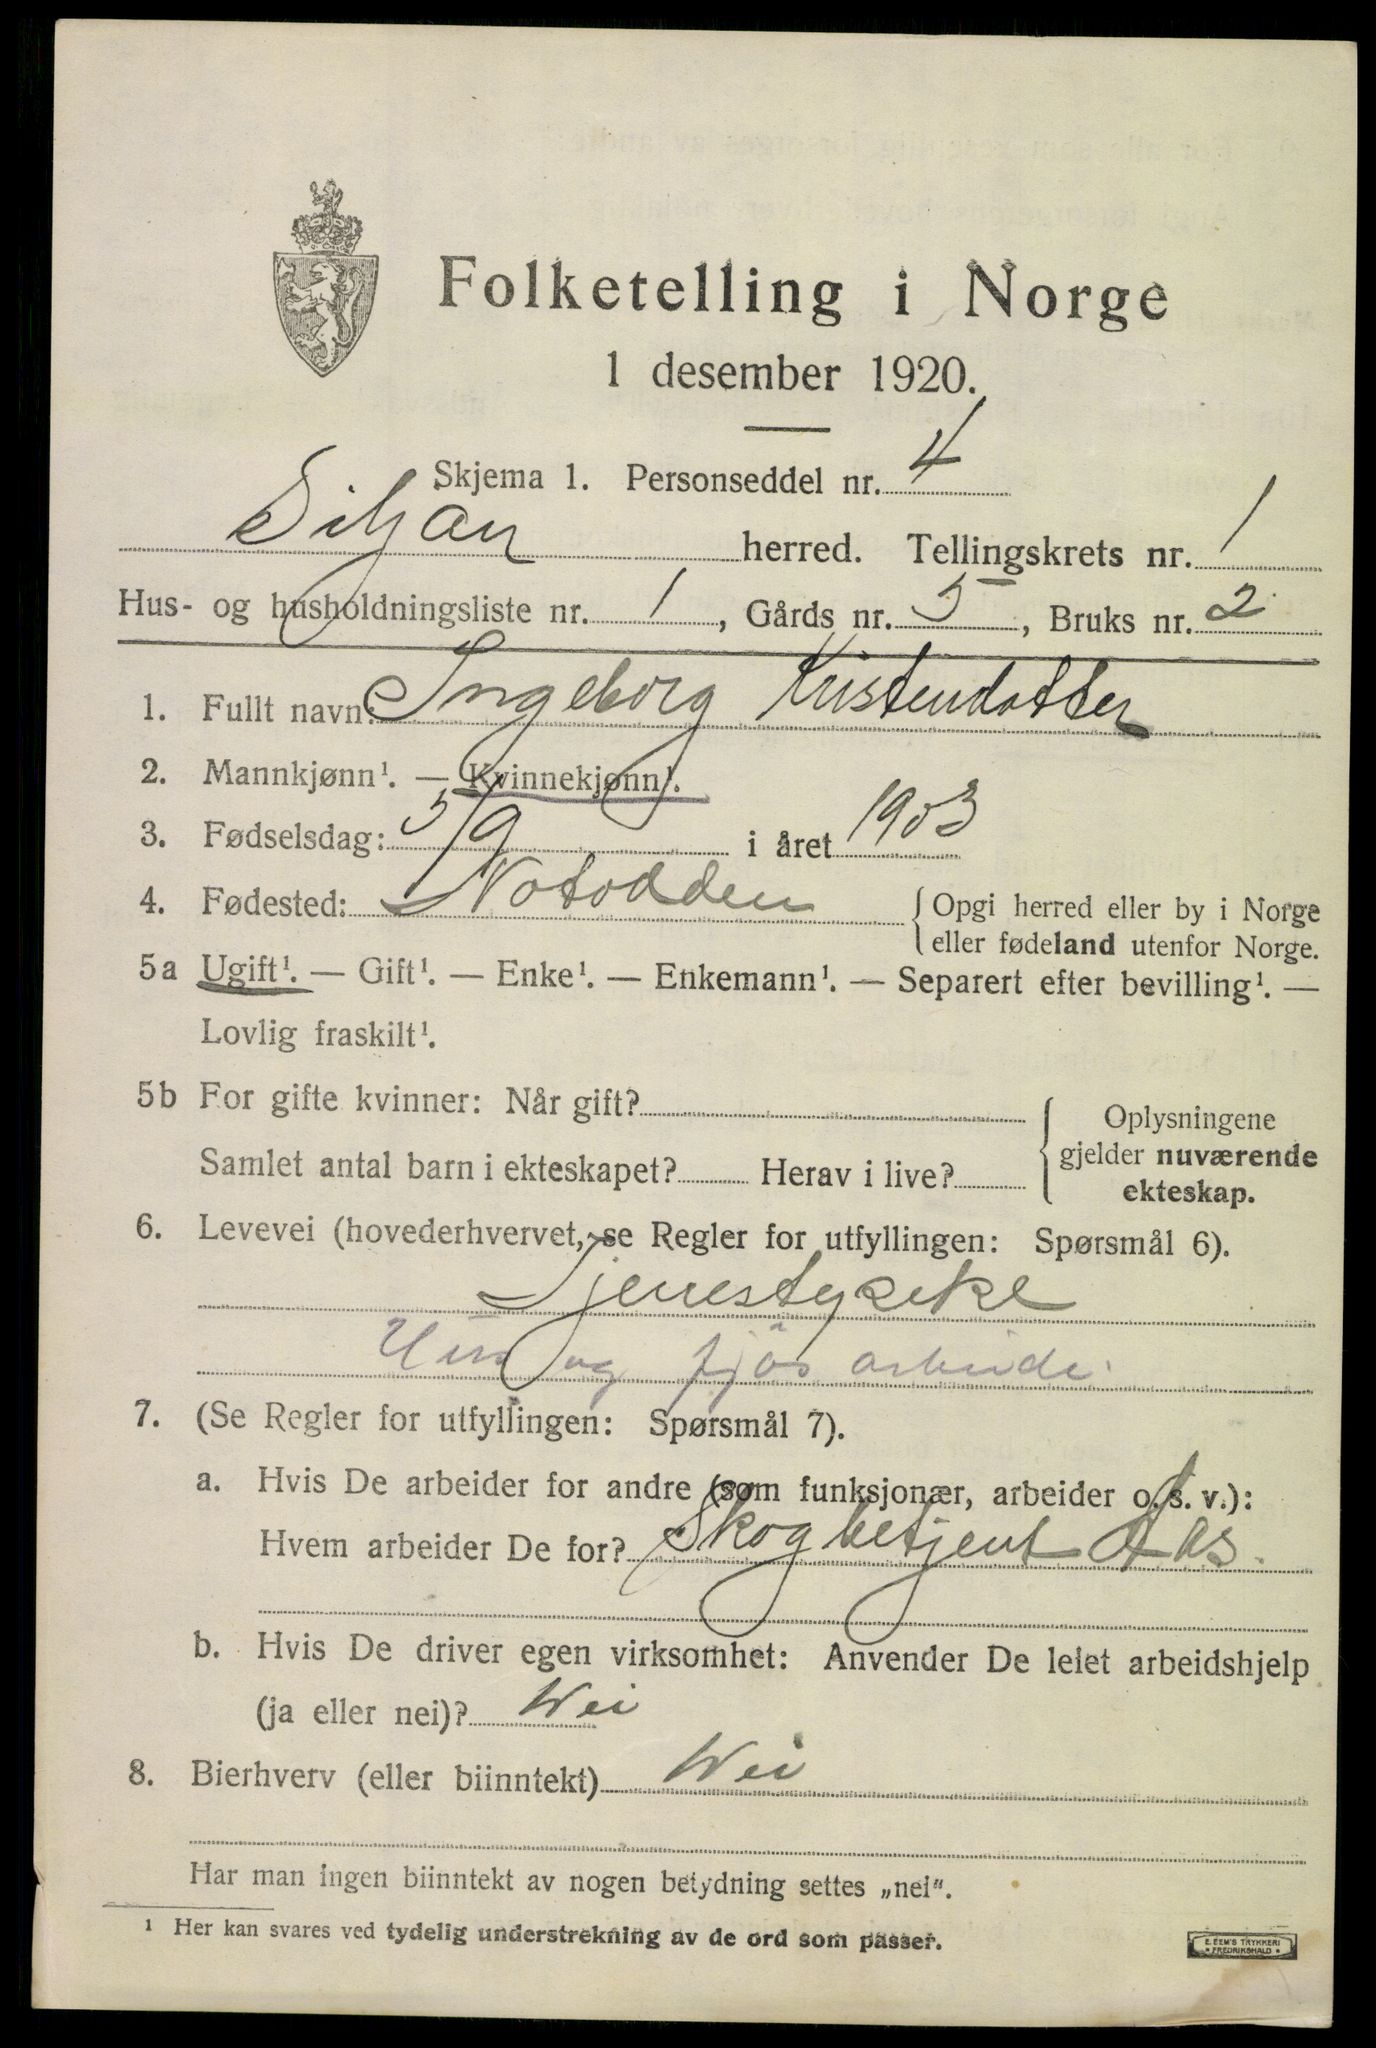 Folketelling i Norge
1 desember 1920.
Skjema 1. Personseddel nr. 4
Siljan herred. Tellingskrets nr. 1
Hus- og husholdningsliste nr. 1, Gårds nr. 5, Bruks nr. 2
1. Fullt navn: Ingeborg Kristendatter
2. Mannkjønn¹. — Kvinnekjønn¹.
3. Fødselsdag: 5/9 i året 1903
4. Fødested: Notodden { Opgi herred eller by i Norge
eller fødeland utenfor Norge.
5a Ugift¹. — Gift¹. — Enke¹. — Enkemann¹. — Separert efter bevilling¹. —
Lovlig fraskilt¹.
5b For gifte kvinner: Når gift? { Oplysningene
gjelder nuværende
ekteskap.
Samlet antal barn i ekteskapet? Herav i live?
6. Levevei (hovederhvervet, se Regler for utfyllingen: Spørsmål 6).
Tjenestypike
Hus og fjøs arbeide.
7. (Se Regler for utfyllingen: Spørsmål 7).
a. Hvis De arbeider for andre (som funksjonær, arbeider o. s. v.):
Hvem arbeider De for? Skogbetjent Aas.
b. Hvis De driver egen virksomhet: Anvender De leiet arbeidshjelp
(ja eller nei)? Nei
8. Bierhverv (eller biinntekt) Nei
Har man ingen biinntekt av nogen betydning settes „nei".
¹ Her kan svares ved tydelig understrekning av de ord som passer.
E. SEM'S TRYKKERI
* FREDRIKSHALD *